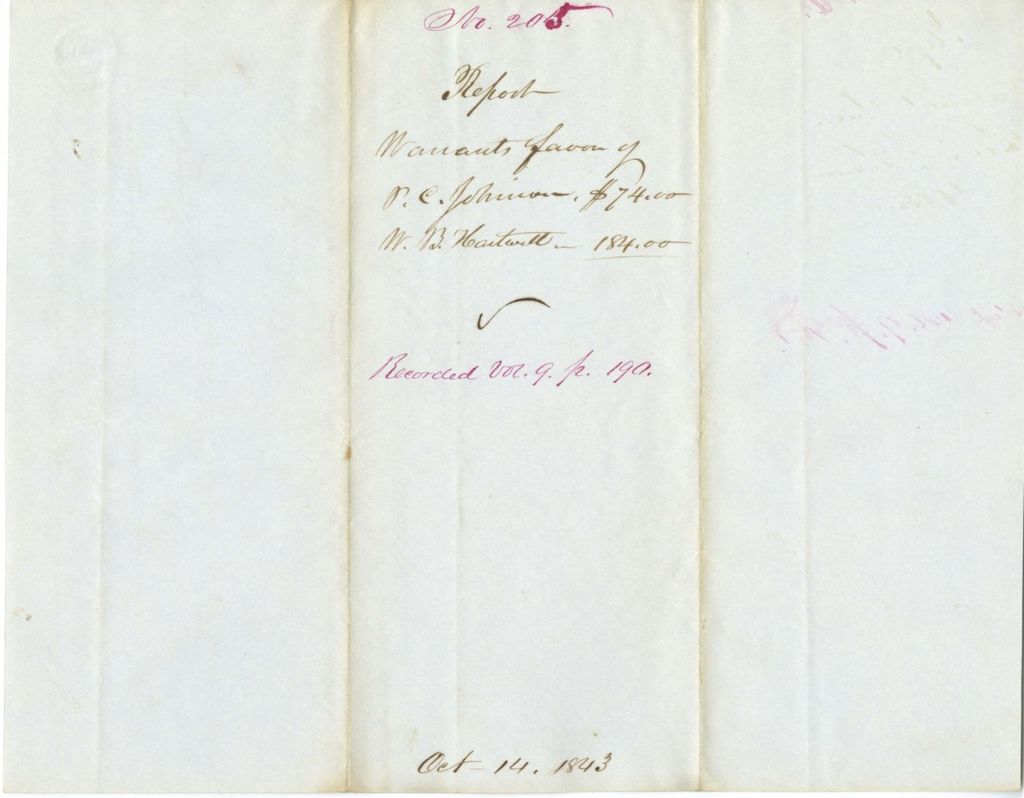 No. 205.
Report
Warrants favor of
P. C. Johnson. $74.00
W. B. Hartwell - 184.00
Recorded Vol. 9. p. 190.
Oct - 14. 1843